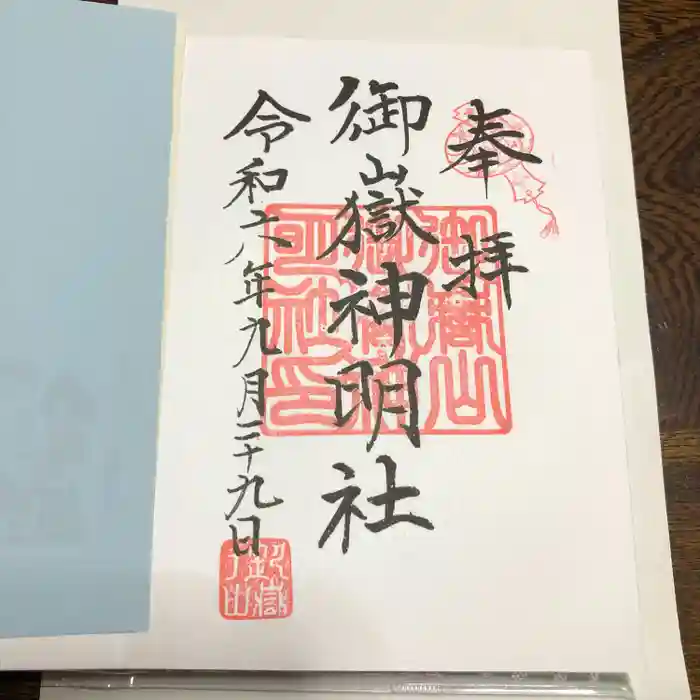 奉拝
御嶽神明社
令和六年九月二十九日